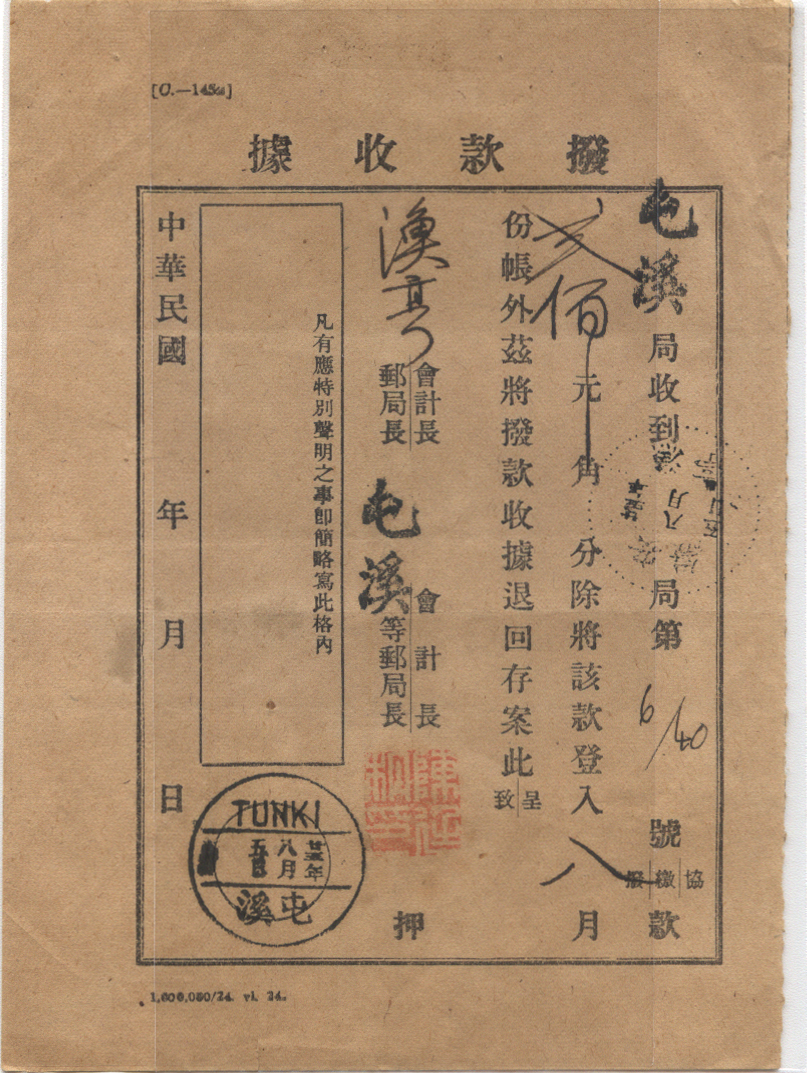 [C.—145a]
撥款收據
屯溪局收到局第6/40號協繳撥款
佰元角分除將該款登入八月
份帳外茲將撥款收據退回存案此呈致
漁亭會計長郵局長屯溪會計長等郵局長押
凡有應特別聲明之事即簡略寫此格內
中華民國年月日
TUNKI
八月
屯溪
1,600,050/24. vi. 24.